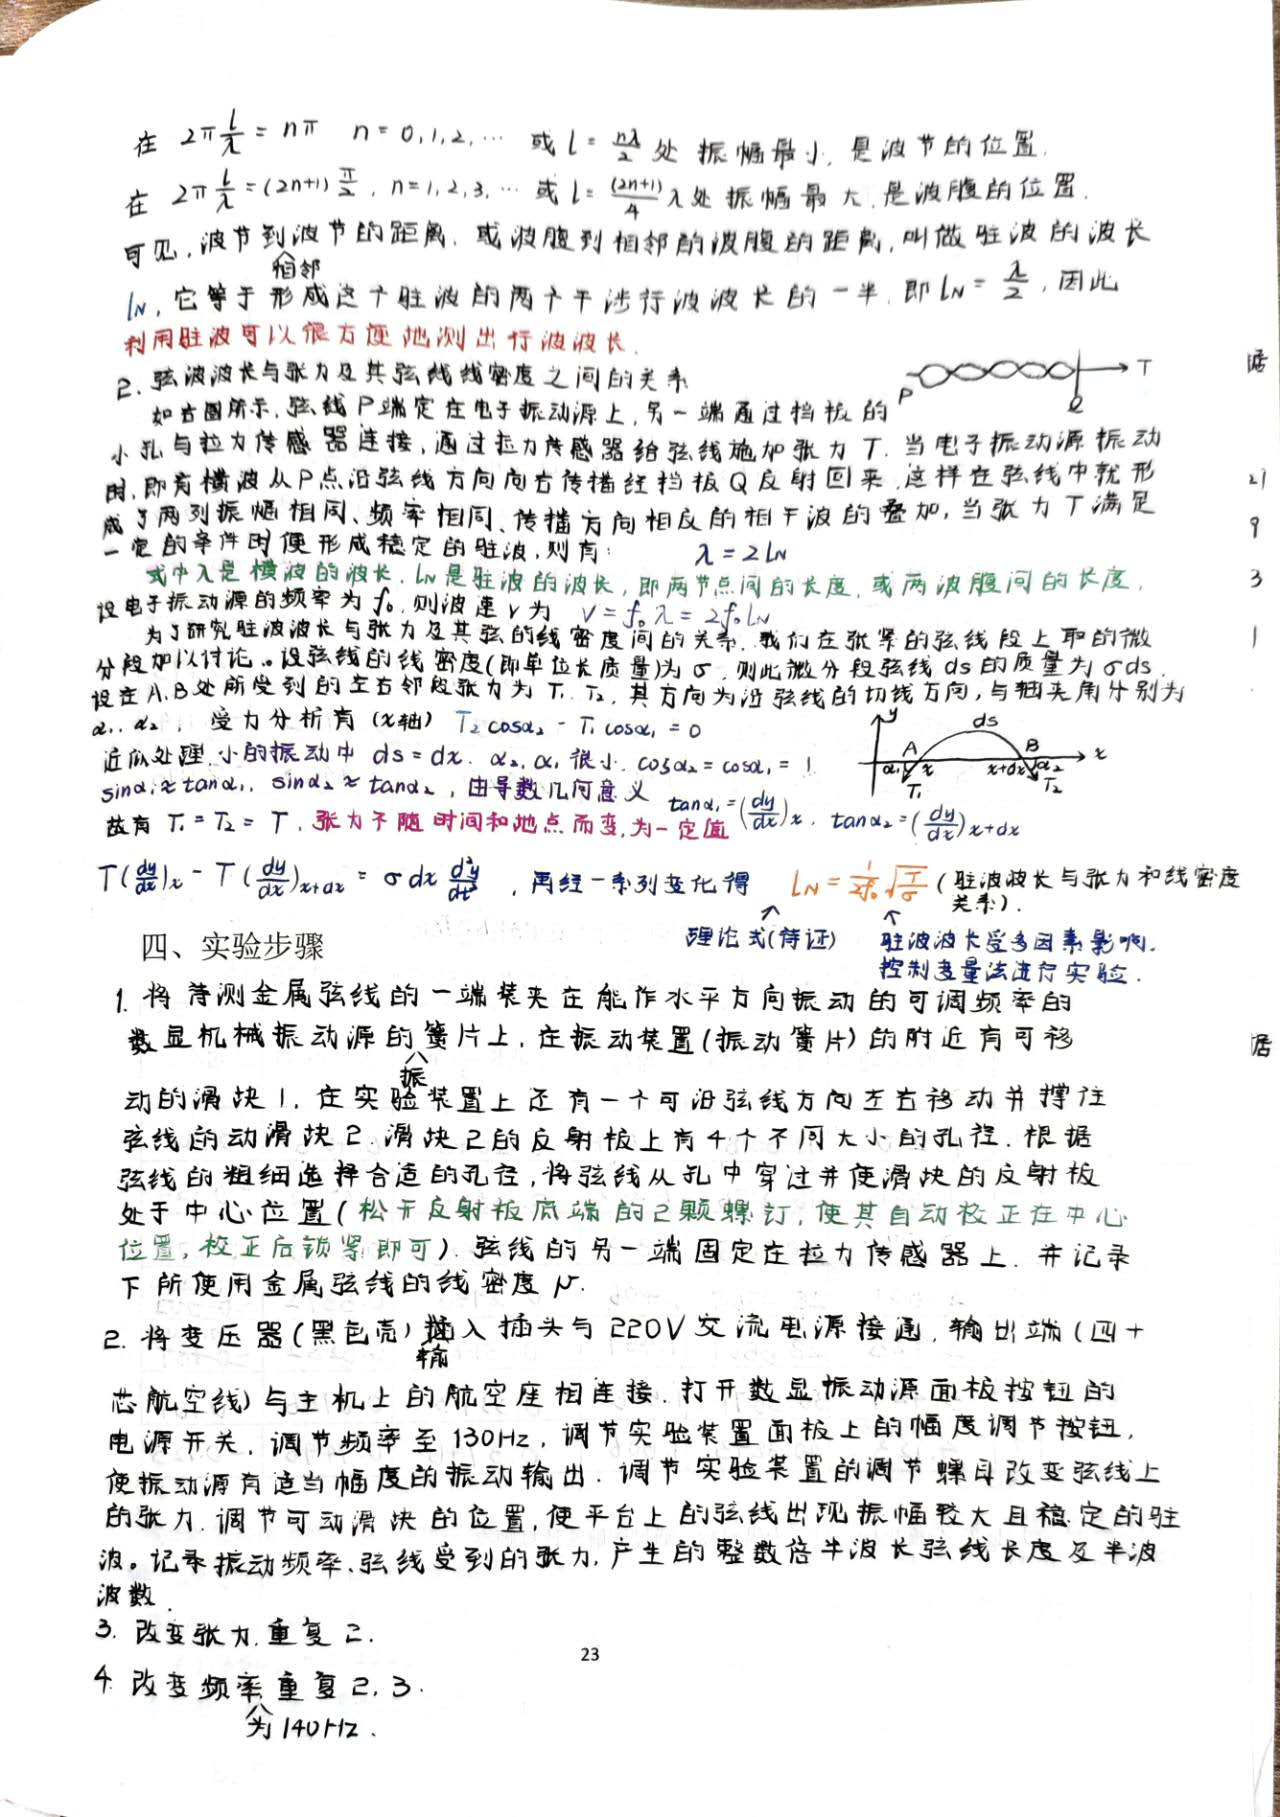 在 2π l/λ = nπ n=0,1,2,… 或 l = nλ/2 处 振幅最小,是波节的位置.
在 2π l/λ = (2n+1) π/2, n=1,2,3,… 或 l = (2n+1)/4 λ处振幅最大,是波腹的位置.
可见,波节到相邻波节的距离,或波腹到相邻的波腹的距离,叫做驻波的波长
lN,它等于形成这个驻波的两个干涉行波波长的一半,即 lN = λ/2,因此
利用驻波可以很方便地测出行波波长.
2. 弦波波长与张力及其弦线线密度之间的关系
P Q T
如右图所示,弦线P端定在电子振动源上,另一端通过挡板的
小孔与拉力传感器连接,通过拉力传感器给弦线施加张力T.当电子振动源振动
时,即有横波从P点沿弦线方向向右传播经挡板Q反射回来,这样在弦线中就形
成了两列振幅相同、频率相同、传播方向相反的相干波的叠加,当张力T满足
一定的条件时便形成稳定的驻波,则有: λ=2lN
式中λ是横波的波长,lN是驻波的波长,即两节点间的长度,或两波腹间的长度,
设电子振动源的频率为f₀,则波速v为 v=f₀λ=2f₀lN
为了研究驻波波长与张力及其弦的线密度间的关系,我们在张紧的弦线段上取的微
分段加以讨论。设弦线的线密度(即单位长质量)为σ,则此微分段弦线ds的质量为σds.
设在A、B处所受到的左右邻段张力为T₁、T₂,其方向为沿弦线的切线方向,与轴夹角分别为
α₁、α₂, 受力分析有(x轴) T₂cosα₂ - T₁cosα₁ = 0
y ds A B x α₁ x x+dx α₂ T₁ T₂
近似处理,小的振动中 ds=dx. α₂,α₁很小, cosα₂=cosα₁=1
sinα₁≈tanα₁, sinα₂≈tanα₂,由导数几何意义 tanα₁=(dy/dx)x, tanα₂=(dy/dx)x+dx
故有 T₁=T₂=T,张力不随时间和地点而变,为一定值
T(dy/dx)x - T(dy/dx)x+dx = σdx d²y/dt²,再经一系列变化得 lN = 1/2f₀ √T/σ (驻波波长与张力和线密度
关系).
理论式(待证) 驻波波长受多因素影响,
控制变量法进行实验.
四、实验步骤
1. 将待测金属弦线的一端装夹在能作水平方向振动的可调频率的
数显机械振动源的振簧片上,在振动装置(振动簧片)的附近有可移
动的滑块1,在实验装置上还有一个可沿弦线方向左右移动并撑住
弦线的动滑块2.滑块2的反射板上有4个不同大小的孔径.根据
弦线的粗细选择合适的孔径,将弦线从孔中穿过并使滑块的反射板
处于中心位置(松开反射板底端的2颗螺钉,使其自动校正在中心
位置,校正后锁紧即可).弦线的另一端固定在拉力传感器上.并记录
下所使用金属弦线的线密度μ.
2. 将变压器(黑色壳)输入插头与220V交流电源接通,输出端(四十
芯航空线)与主机上的航空座相连接.打开数显振动源面板按钮的
电源开关,调节频率至130Hz,调节实验装置面板上的幅度调节按钮,
使振动源有适当幅度的振动输出.调节实验装置的调节螺母改变弦线上
的张力.调节可动滑块的位置,使平台上的弦线出现振幅较大且稳定的驻
波。记录振动频率、弦线受到的张力,产生的整数倍半波长弦线长度及半波
波数.
3. 改变张力,重复2.
4. 改变频率为140Hz,重复2,3.
23
据
21
9
3
1
居